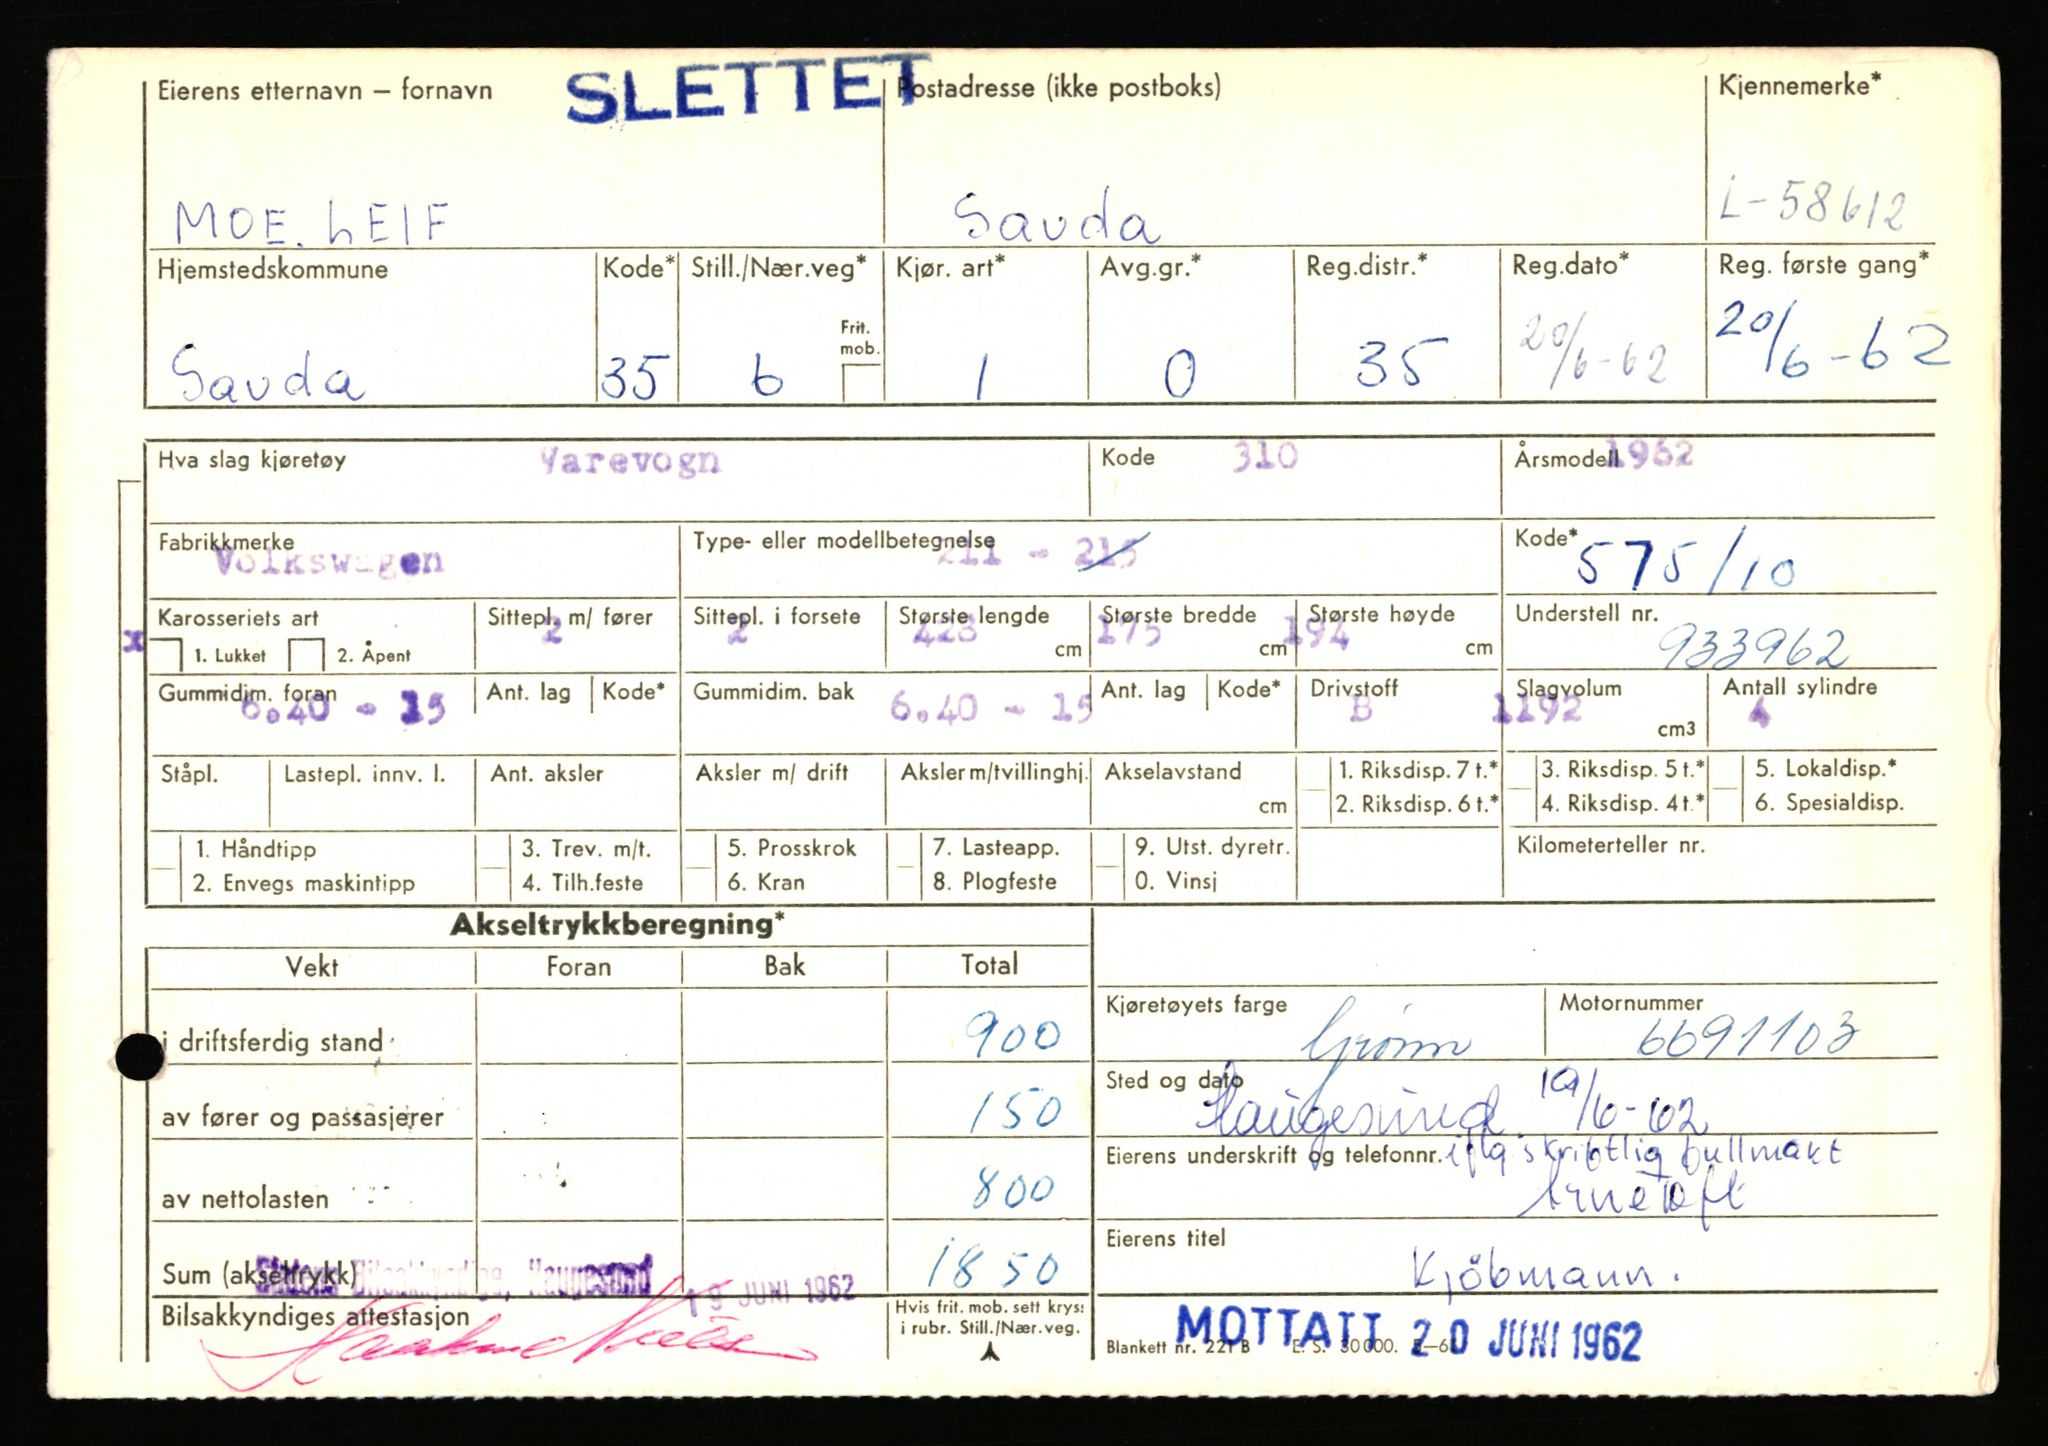 SLETTET
Eierens etternavn – fornavn Postadresse (ikke postboks) Kjennemerke*
MOE. LEIF Sauda L-58612
Hjemstedskommune Kode* Still./Nær.veg* Kjør. art* Avg.gr.* Reg.distr.* Reg.dato* Reg. første gang*
Frit. mob.
Sauda 35 6 1 0 35 20/6-62 20/6-62
Hva slag kjøretøy Varevogn Kode 310 Årsmodell 1962
Fabrikkmerke Type- eller modellbetegnelse Kode*
Volkswagen 211 - 215 575/10
Karosseriets art Sittepl. m/ fører Sittepl. i forsete Største lengde Største bredde Største høyde Understell nr.
x 2 2 423 175 194 933962
1. Lukket 2. Åpent cm cm cm
Gummidim. foran Ant. lag Kode* Gummidim. bak Ant. lag Kode* Drivstoff Slagvolum Antall sylindre
6.40 - 15 6.40 - 15 B 1192 4
cm3
Ståpl. Lastepl. innv. l. Ant. aksler Aksler m/ drift Aksler m/tvillinghj. Akselavstand 1. Riksdisp. 7 t.* 3. Riksdisp. 5 t.* 5. Lokaldisp.*
cm 2. Riksdisp. 6 t.* 4. Riksdisp. 4 t.* 6. Spesialdisp.
1. Håndtipp 3. Trev. m/t. 5. Prosskrok 7. Lasteapp. 9. Utst. dyretr. Kilometerteller nr.
2. Envegs maskintipp 4. Tilh.feste 6. Kran 8. Plogfeste 0. Vinsj
Akseltrykkberegning*
Vekt Foran Bak Total
Kjøretøyets farge Motornummer
i driftsferdig stand 900 Grönn 6691103
Sted og dato
av fører og passasjerer 150 Haugesund 19/6-62
Eierens underskrift og telefonnr. iflg skriftlig fullmakt
av nettolasten 800 Arne
Eierens titel
Sum (akseltrykk) 1850 Kjöbmann.
Statens Bilsakkyndige, Haugesund 19 JUNI 1962
Bilsakkyndiges attestasjon
Hvis frit. mob. sett kryss i rubr. Still./Nær.veg.
MOTTATT 20 JUNI 1962
Blankett nr. 221 B E. S. 30 000.